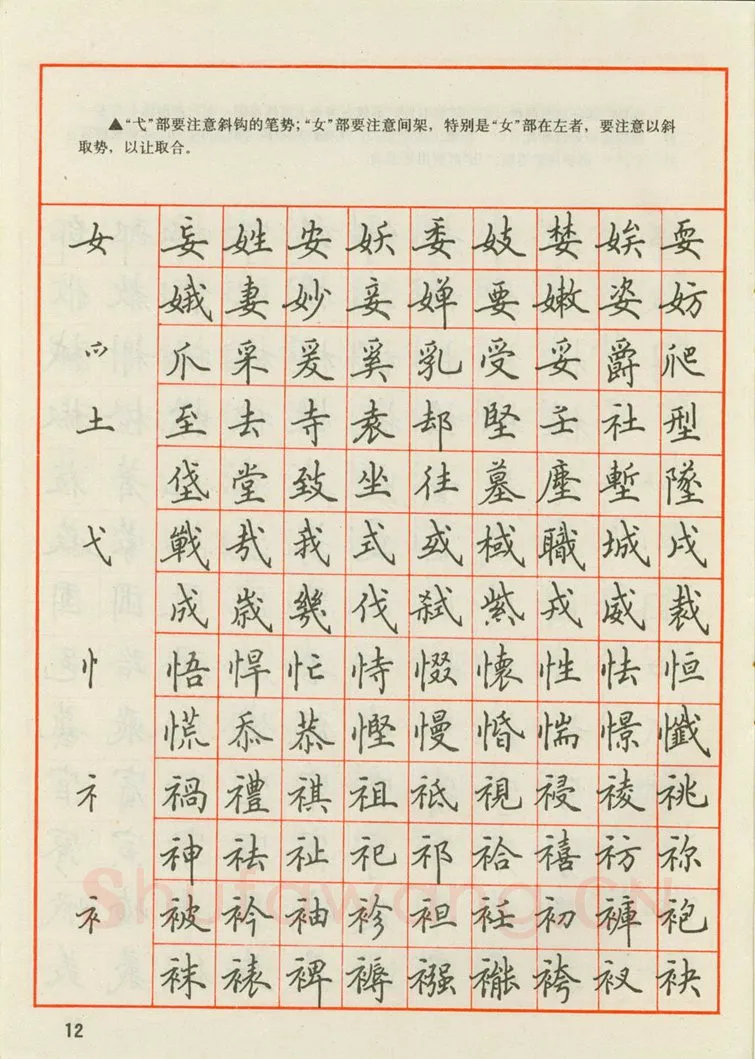 ▲“弋”部要注意斜钩的笔势；“女”部要注意间架，特别是“女”部在左者，要注意以斜
取势，以让取合。
女 妄 姓 安 妖 委 妓 婪 娭 耍
娥 妻 妙 妾 婵 要 嫩 姿 妨
爫 爪 采 爰 奚 乳 受 妥 爵 爬
土 至 去 寺 袁 却 堅 壬 社 型
垡 堂 致 坐 往 墓 塵 塹 墜
弋 戰 哉 我 式 或 域 職 城 戍
成 歲 幾 伐 弑 戎 威 裁
忄 悟 悍 忙 恃 惙 懷 性 怯 恒
慌 忝 恭 慳 慢 惛 惴 憬 懺
礻 禍 禮 祺 祖 祗 視 祲 祾 祧
神 祛 祉 祀 祁 祫 禧 祊 祢
衤 被 衿 袖 袗 袒 衽 初 褲 袍
袜 裱 裨 褥 襁 袴 衩 袂
12
Shufawang.CN